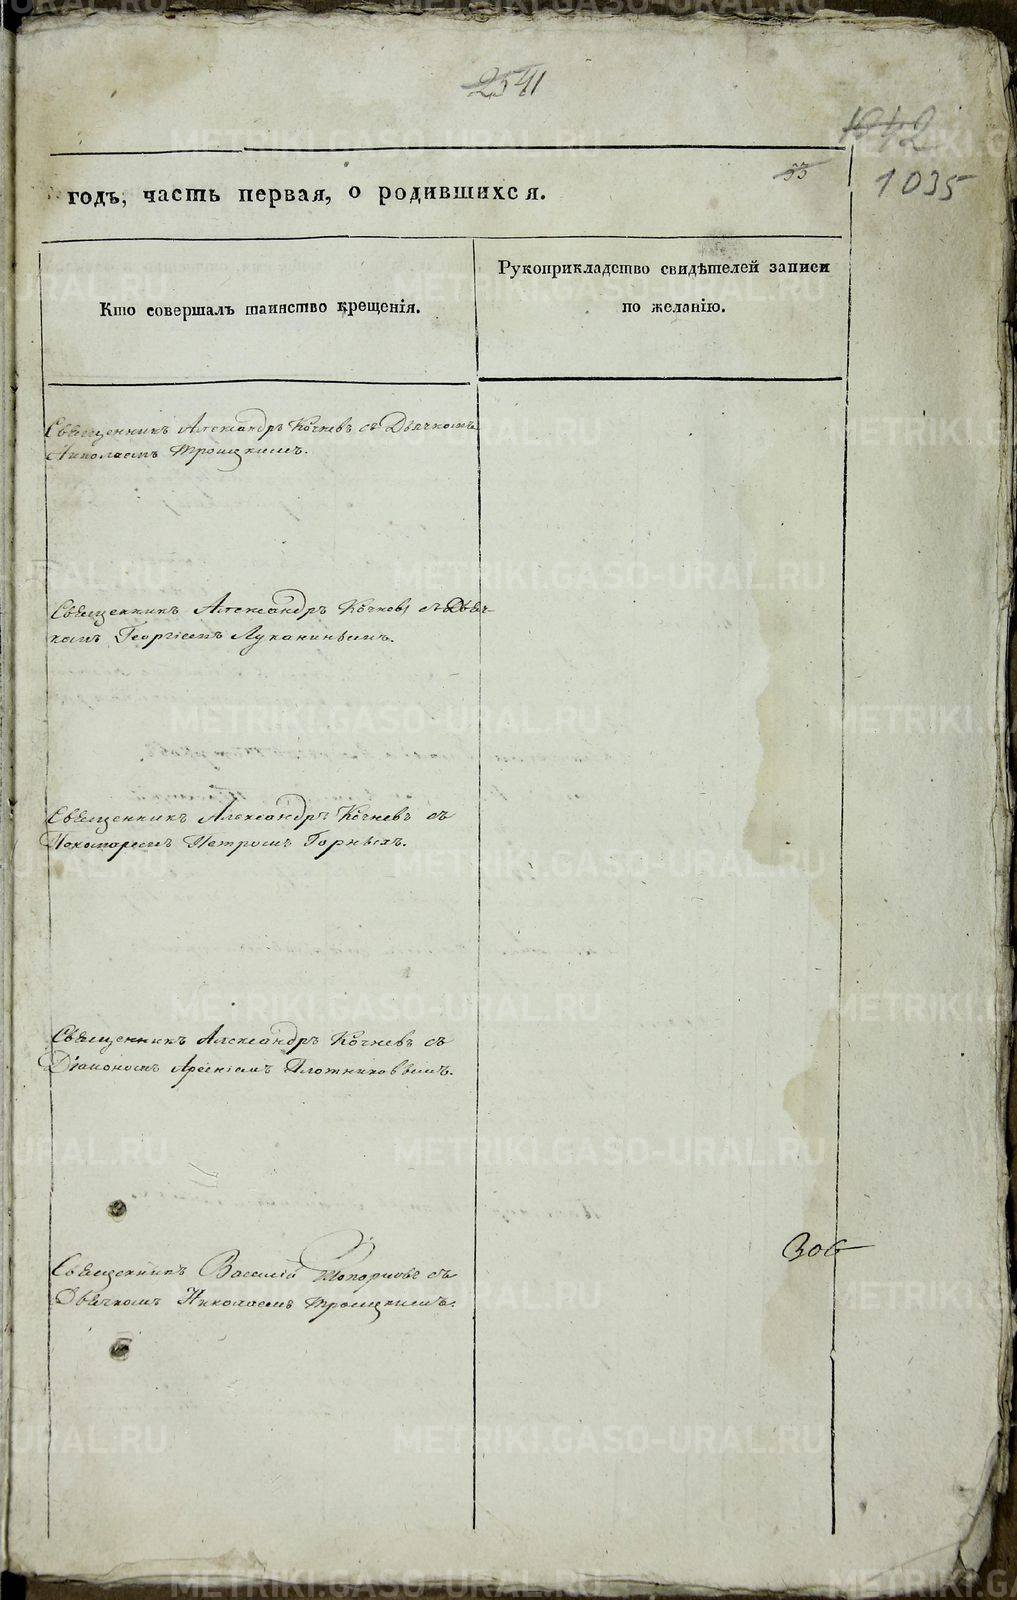 2541
1042
33
1035
годъ, часть первая, о родившихся.
Кто совершалъ таинство крещенія.
Рукоприкладство свидѣтелей записи
по желанію.
Священникъ Александръ Кочневъ съ Дьячкомъ
Николаемъ Троицкимъ.
Священникъ Александръ Кочневъ съ Дья-
комъ Георгіемъ Луканинымъ.
Священникъ Александръ Кочневъ съ
Пономаремъ Петромъ Горныхъ.
Священникъ Александръ Кочневъ съ
Діакономъ Арсеніемъ Плотниковымъ.
Священникъ Василій Топорковъ съ
Дьячкомъ Николаемъ Троицкимъ.
306
METRIKI.GASO-URAL.RU